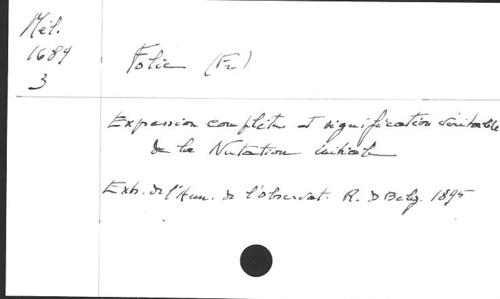 Mél.
1689
3
Folie (Fr.)
Expression complète et signification véritable
de la Nutation initiale
Extr. de l'Ann. de l'Observat. R. D Belg. 1895